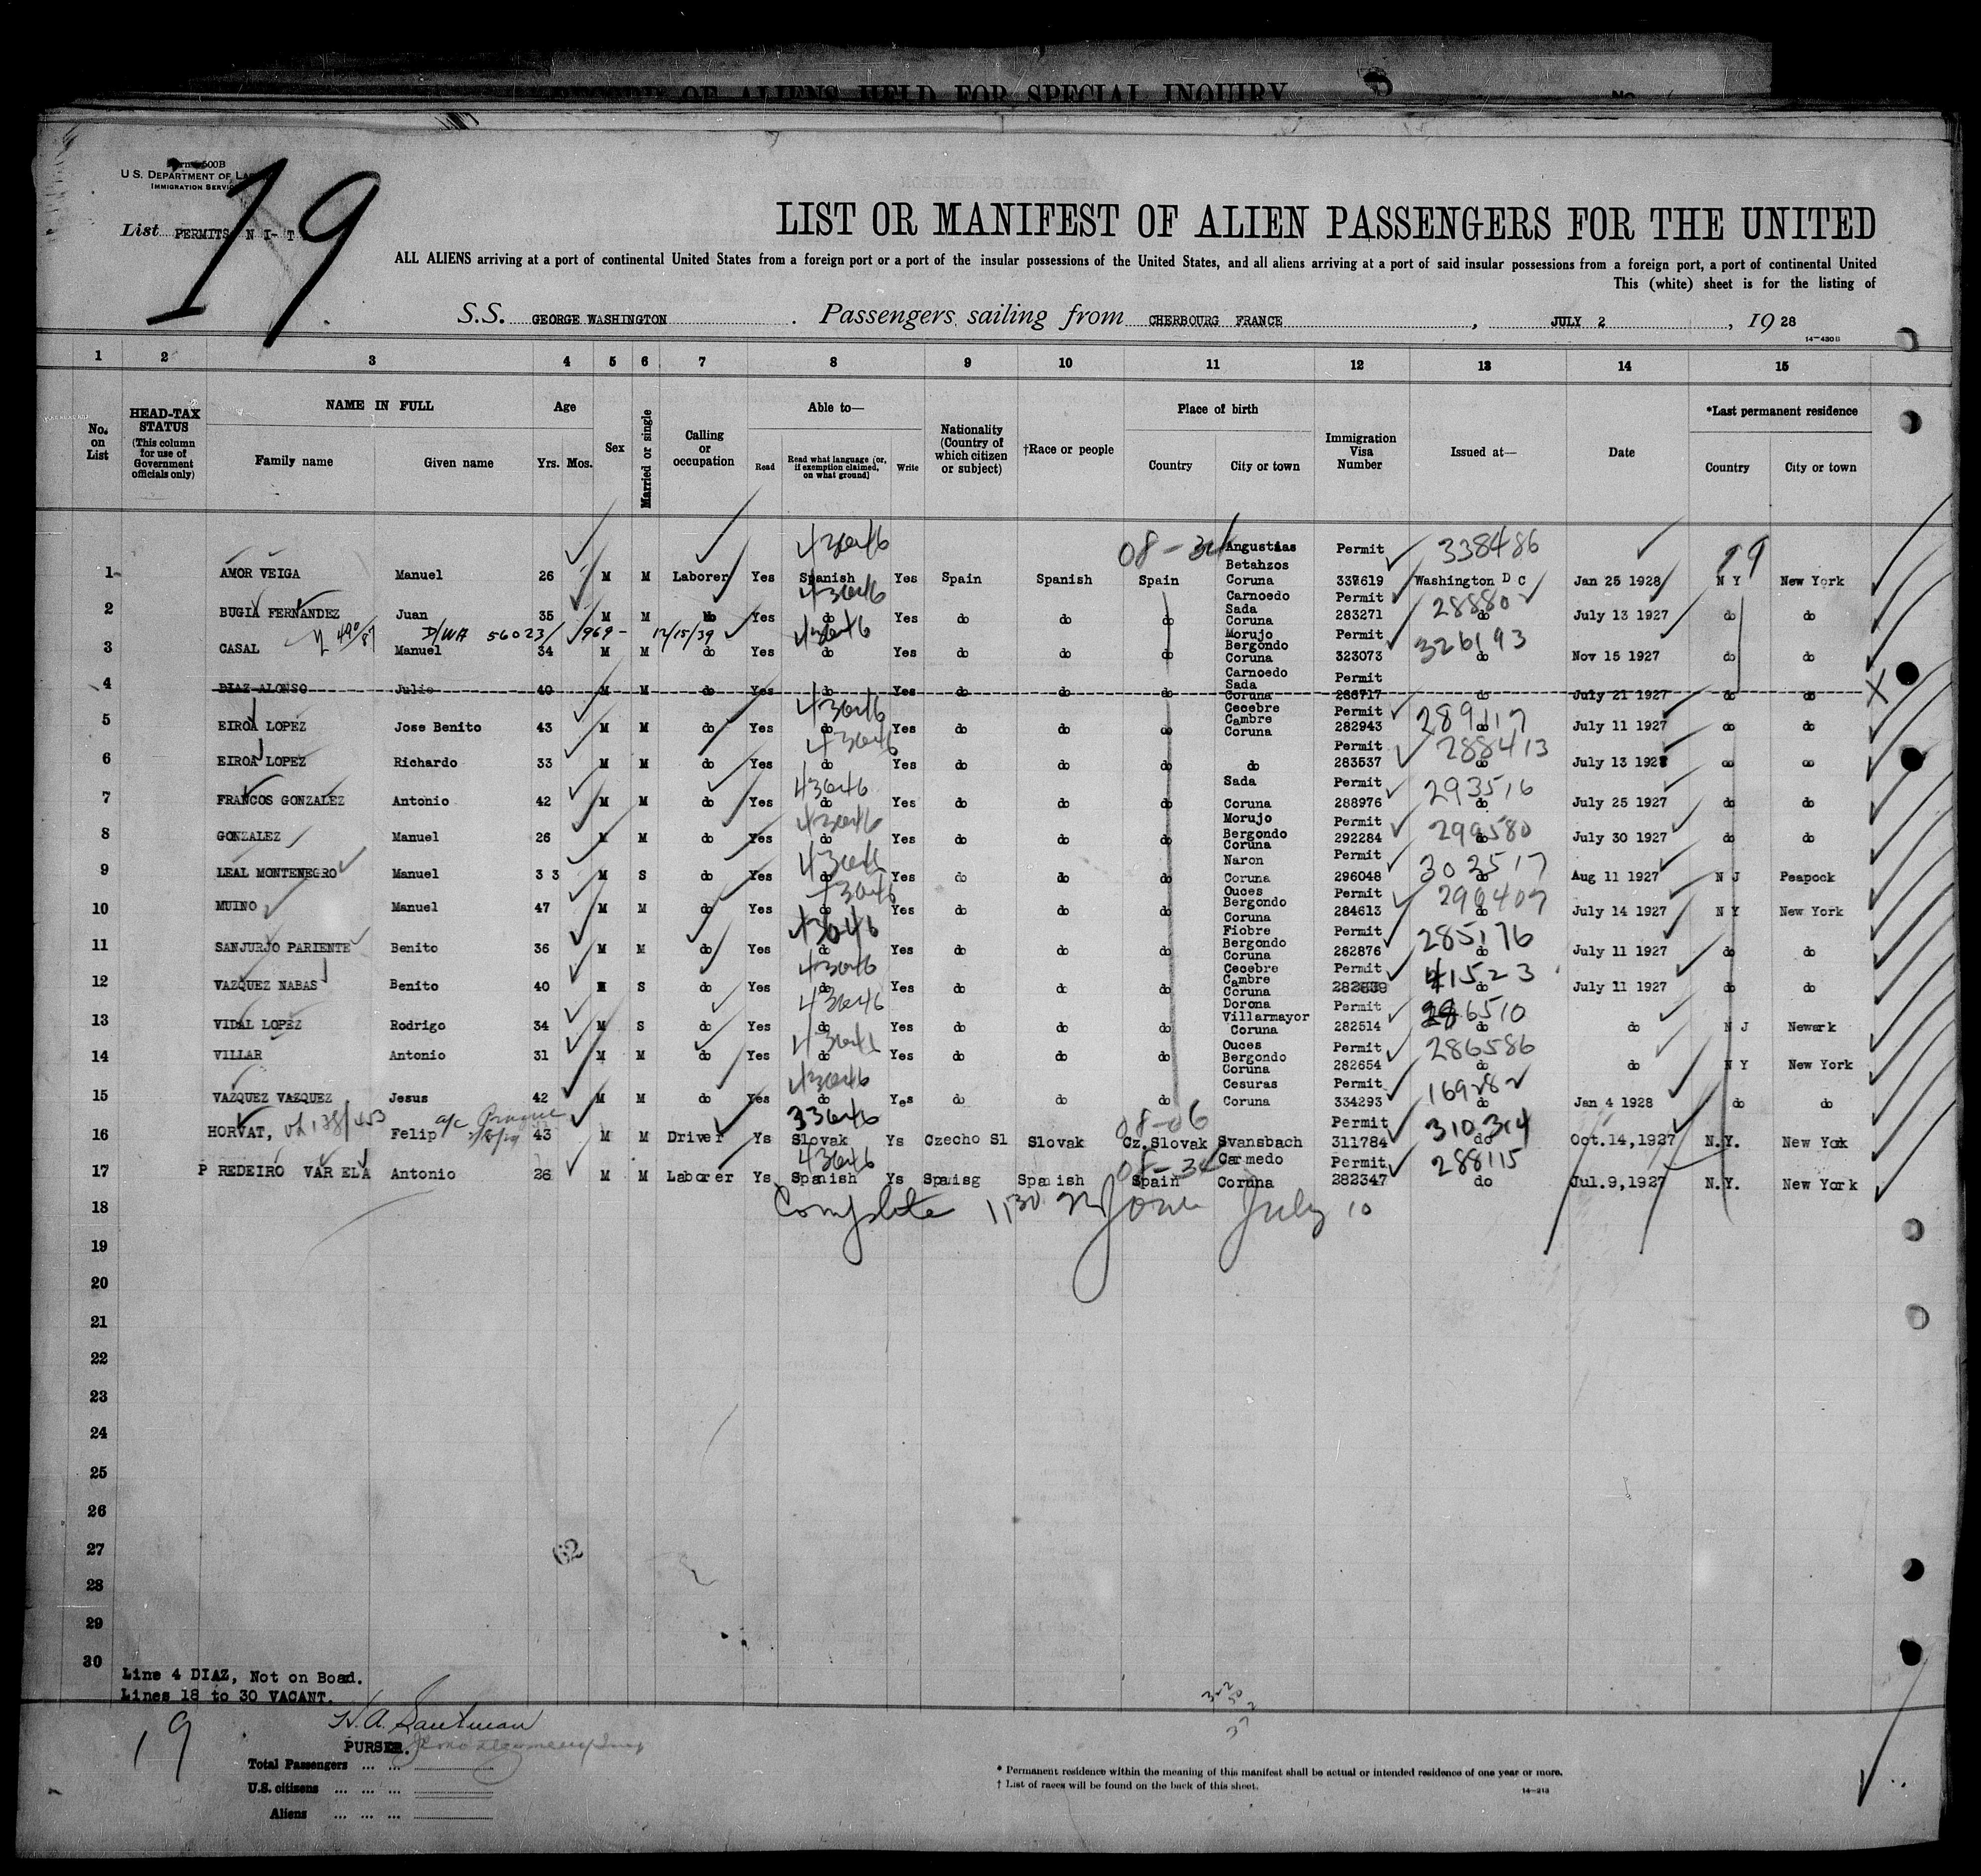 RECORD OF ALIENS HELD FOR SPECIAL INQUIRY
Form 500B
U.S. DEPARTMENT OF LA
IMMIGRATION SERVIC
19
List PERMITS N I- T
LIST OR MANIFEST OF ALIEN PASSENGERS FOR THE UNITED
ALL ALIENS arriving at a port of continental United States from a foreign port or a port of the insular possessions of the United States, and all aliens arriving at a port of said insular possessions from a foreign port, a port of continental United
This (white) sheet is for the listing of
S.S. GEORGE WASHINGTON. Passengers sailing from CHERBOURG FRANCE, JULY 2, 19 28
14-430B
1 2 3 4 5 6 7 8 9 10 11 12 13 14 15
No. on List
HEAD-TAX STATUS (This column for use of Government officials only)
NAME IN FULL
Family name Given name
Age
Yrs. Mos.
Sex
Married or single
Calling or occupation
Able to—
Read Read what language (or, if exemption claimed, on what ground) Write
Nationality (Country of which citizen or subject)
†Race or people
Place of birth
Country City or town
Immigration Visa Number
Issued at—
Date
*Last permanent residence
Country City or town
43646 08-34 Angustias Permit 338486 99
Betahzos
1 AMOR VEIGA Manuel 26 M M Laborer Yes Spanish Yes Spain Spanish Spain Coruna 337619 Washington D C Jan 25 1928 N Y New York
43646 Carnoedo Permit 28880
Sada
2 BUGIA FERNANDEZ Juan 35 M M do Yes do Yes do do do Coruna 283271 do July 13 1927 do do
2 490/87 D/WA 56023/ 969- 12/15/39 43646 Morujo Permit 326193
Bergondo
3 CASAL Manuel 34 M M do Yes do Yes do do do Coruna 323073 do Nov 15 1927 do do
Carnoedo Permit
Sada
4 DIAZ ALONSO Julio 40 M M do Yes do Yes do do do Coruna 286717 do July 21 1927 do do X
43646 Cecebre Permit 289117
Cambre
5 EIROA LOPEZ Jose Benito 43 M M do Yes do Yes do do do Coruna 282943 do July 11 1927 do do
43646 Permit 288413
6 EIROA LOPEZ Richardo 33 M M do Yes do Yes do do do do 283537 do July 13 1928 do do
43646 Sada Permit 293516
7 FRANCOS GONZALEZ Antonio 42 M M do Yes do Yes do do do Coruna 288976 do July 25 1927 do do
43646 Morujo Permit 299580
Bergondo
8 GONZALEZ Manuel 26 M M do Yes do Yes do do do Coruna 292284 do July 30 1927 do do
43646 Naron Permit 302517
9 LEAL MONTENEGRO Manuel 3 3 M S do Yes do Yes do do do Coruna 296048 do Aug 11 1927 N J Peapock
43646 Ouces Permit 290407
Bergondo
10 MUINO Manuel 47 M M do Yes do Yes do do do Coruna 284613 do July 14 1927 N Y New York
43646 Fiobre Permit 285176
Bergondo
11 SANJURJO PARIENTE Benito 36 M M do Yes do Yes do do do Coruna 282876 do July 11 1927 do do
43646 Cecebre Permit 41523
Cambre
12 VAZQUEZ NABAS Benito 40 M S do Yes do Yes do do do Coruna 282839 do July 11 1927 do do
43646 Dorona Permit 286510
Villarmayor
13 VIDAL LOPEZ Rodrigo 34 M S do Yes do Yes do do do Coruna 282514 do do N J Newark
43646 Ouces Permit 286586
Bergondo
14 VILLAR Antonio 31 M M do Yes do Yes do do do Coruna 282654 do do N Y New York
43646 Cesuras Permit 169282
15 VAZQUEZ VAZQUEZ Jesus 42 M M do Yes do Yes do do do Coruna 334293 do Jan 4 1928 do do
33646 08-06 Permit 310314
16 HORVAT, Felip a/c Prague 43 M M Driver Ys Slovak Ys Czecho Sl Slovak Cz.Slovak Svansbach 311784 do Oct.14,1927 N.Y. New York
43646 08-34 Carmedo Permit 288115
17 P REDEIRO VARELA Antonio 26 M M Laborer Ys Spanish Ys Spaisg Spanish Spain Coruna 282347 do Jul.9,1927 N.Y. New York
18 Complete 11 30 July 10
19
20
21
22
23
24
25
26
27
62
28
29
30
Line 4 DIAZ, Not on Boad.
Lines 18 to 30 VACANT.
19
PURSER.
Total Passengers ... ...
U.S. citizens ... ... ...
Aliens ... ... ...
* Permanent residence within the meaning of this manifest shall be actual or intended residence of one year or more.
† List of races will be found on the back of this sheet.
14-213